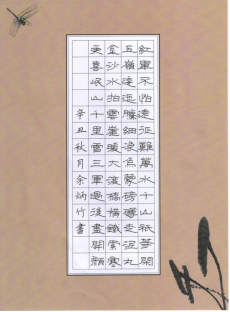 紅軍不怕遠征難萬水千山祇等閒
五嶺逶迤騰細浪烏蒙磅礴走泥丸
金沙水拍雲崖暖大渡橋橫鐵索寒
更喜岷山千里雪三軍過後盡開顏
辛丑秋月余炳竹書